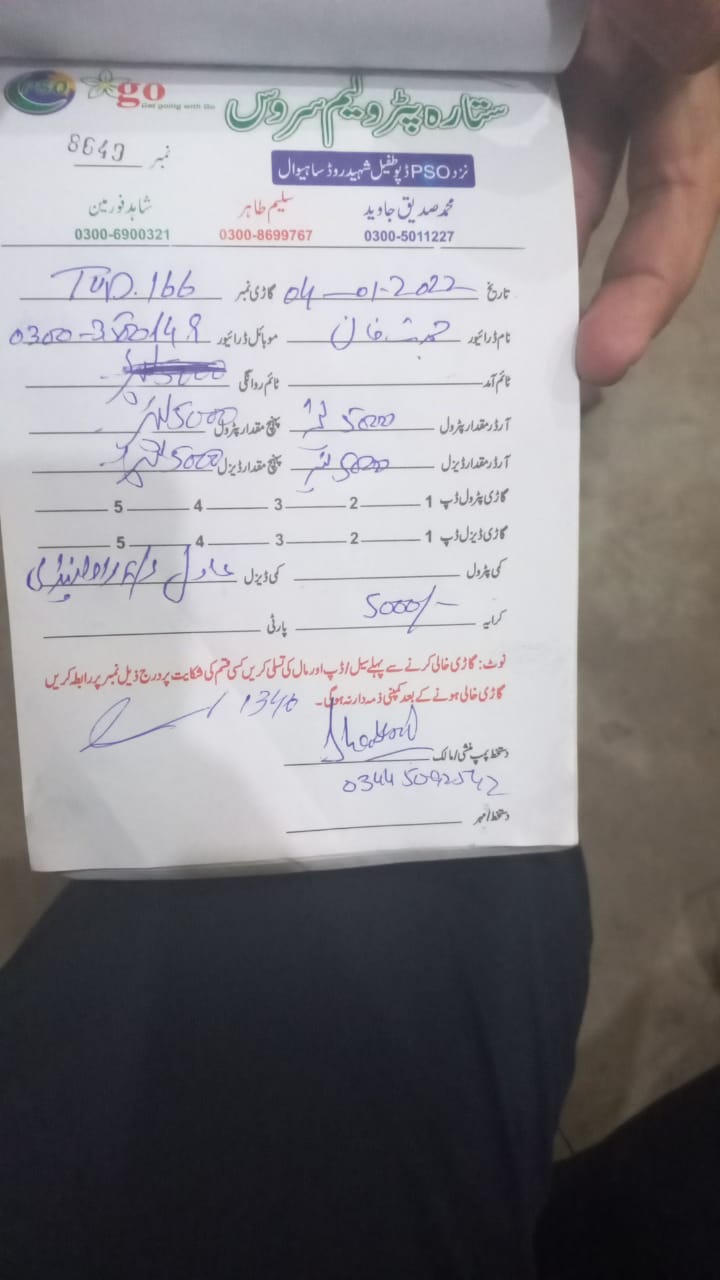 PSO go
Get going with Go
ستارہ پٹرولیم سروس
نمبر 8649
نزد PSO ڈپو طفیل شہید روڈ ساہیوال
محمد صدیق جاوید سلیم طاہر شاہد فورمین
0300-5011227 0300-8699767 0300-6900321
تاریخ 04-01-2022 گاڑی نمبر 166
نام ڈرائیور خان موبائل ڈرائیور
ٹائم آمد ٹائم روانگی
آرڈر مقدار پٹرول 5000 لیٹر پہنچ مقدار پٹرول 5000 لیٹر
آرڈر مقدار ڈیزل 5000 لیٹر پہنچ مقدار ڈیزل 5000 لیٹر
گاڑی پٹرول ڈپ 1 2 3 4 5
گاڑی ڈیزل ڈپ 1 2 3 4 5
کمی پٹرول کمی ڈیزل عادل
کرایہ 5000/- پارٹی
نوٹ: گاڑی خالی کرنے سے پہلے سیل/ڈپ اور مال کی تسلی کریں کسی قسم کی شکایت پر درج ذیل نمبر پر رابطہ کریں
گاڑی خالی ہونے کے بعد کمپنی ذمہ دار نہ ہوگی۔ 1340
دستخط پمپ منشی/مالک
0344 5092542
دستخط/مہر